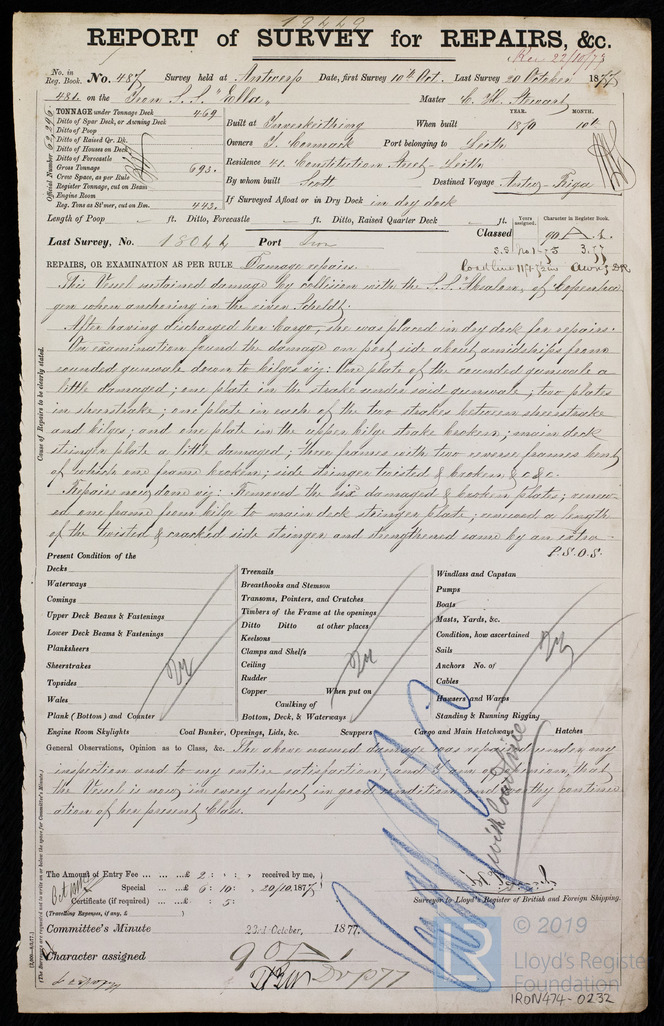 19449
REPORT of SURVEY for REPAIRS, &c.
Rec 22/10/77
No. in Reg. Book. No. 487 Survey held at Antwerp Date, first Survey 10th Oct. Last Survey 20 October 1877
481 on the Iron S.S. "Ella" Master C. H. Stewart
TONNAGE under Tonnage Deck 469
Ditto of Spar Deck, or Awning Deck
Ditto of Poop
Ditto of Raised Qr. Dk.
Ditto of Houses on Deck
Ditto of Forecastle
Gross Tonnage 693.
Crew Space, as per Rule
Register Tonnage, cut on Beam
Engine Room
Reg. Tons as St'mer, cut on Bm. 443.
Official Number 62,296
Built at Inverkeithing When built YEAR. 1870 MONTH. 10th
Owners J. Cormack Port belonging to Leith
Residence 41. Constitution Street - Leith
By whom built Scott Destined Voyage Antw - Riga
If Surveyed Afloat or in Dry Dock in dry dock
Length of Poop ft. Ditto, Forecastle ft. Ditto, Raised Quarter Deck ft.
Years assigned. Character in Register Book.
Last Survey, No. 18044 Port Iron Classed 90 A.1.
S.S. No1-75 3.77
REPAIRS, OR EXAMINATION AS PER RULE Damage repairs.
This Vessel sustained damage by collision with the S.S. of Copenha
gen when anchoring in the river Scheldt:
After having discharged her cargo, she was placed in dry dock for repairs.
On examination found the damage on port side about amidships from
rounded gunwale down to bilges viz: One plate of the rounded gunwale a
little damaged; one plate in the strake under said gunwale; two plates
in sheerstrake; one plate in each of the two strakes between sheerstrake
and bilges; and one plate in the upper bilge strake broken; main deck
stringer plate a little damaged; three frames with two reverse frames bent
of which one frame broken; side stringer twisted & broken &c &c.
Repairs now done viz: Removed the six damaged & broken plates; renew-
ed one frame from bilge to main deck stringer plate; renewed a length
of the twisted & cracked side stringer and strengthened same by an extra
P.S.O.S.
Cause of Repairs to be clearly stated.
Present Condition of the
Decks
Waterways
Comings
Upper Deck Beams & Fastenings
Lower Deck Beams & Fastenings
Planksheers
Sheerstrakes
Topsides
Wales
Plank (Bottom) and Counter
Treenails
Breasthooks and Stemson
Transoms, Pointers, and Crutches
Timbers of the Frame at the openings
Ditto Ditto at other places
Keelsons
Clamps and Shelfs
Ceiling
Rudder
Copper When put on
Caulking of
Bottom, Deck, & Waterways
Windlass and Capstan
Pumps
Boats
Masts, Yards, &c.
Condition, how ascertained
Sails
Anchors No. of
Cables
Hawsers and Warps
Standing & Running Rigging
Engine Room Skylights Coal Bunker, Openings, Lids, &c. Scuppers Cargo and Main Hatchways Hatches
General Observations, Opinion as to Class, &c. The above named damage was repaired under my
inspection and to my entire satisfaction; and I am of opinion, that
the Vessel is now in every respect in good condition and worthy continu-
ation of her present Class.
The Amount of Entry Fee £ 2 : : received by me,
Special £ 6 : 10 : 20/10.1877
Certificate (if required) £ : 5 :
(Travelling Expenses, if any, £ )
Surveyor to Lloyd's Register of British and Foreign Shipping.
Committee's Minute 23rd October, 1877.
Character assigned 90 A 1
© 2019
Lloyd's Register
Foundation
IRON474-0232